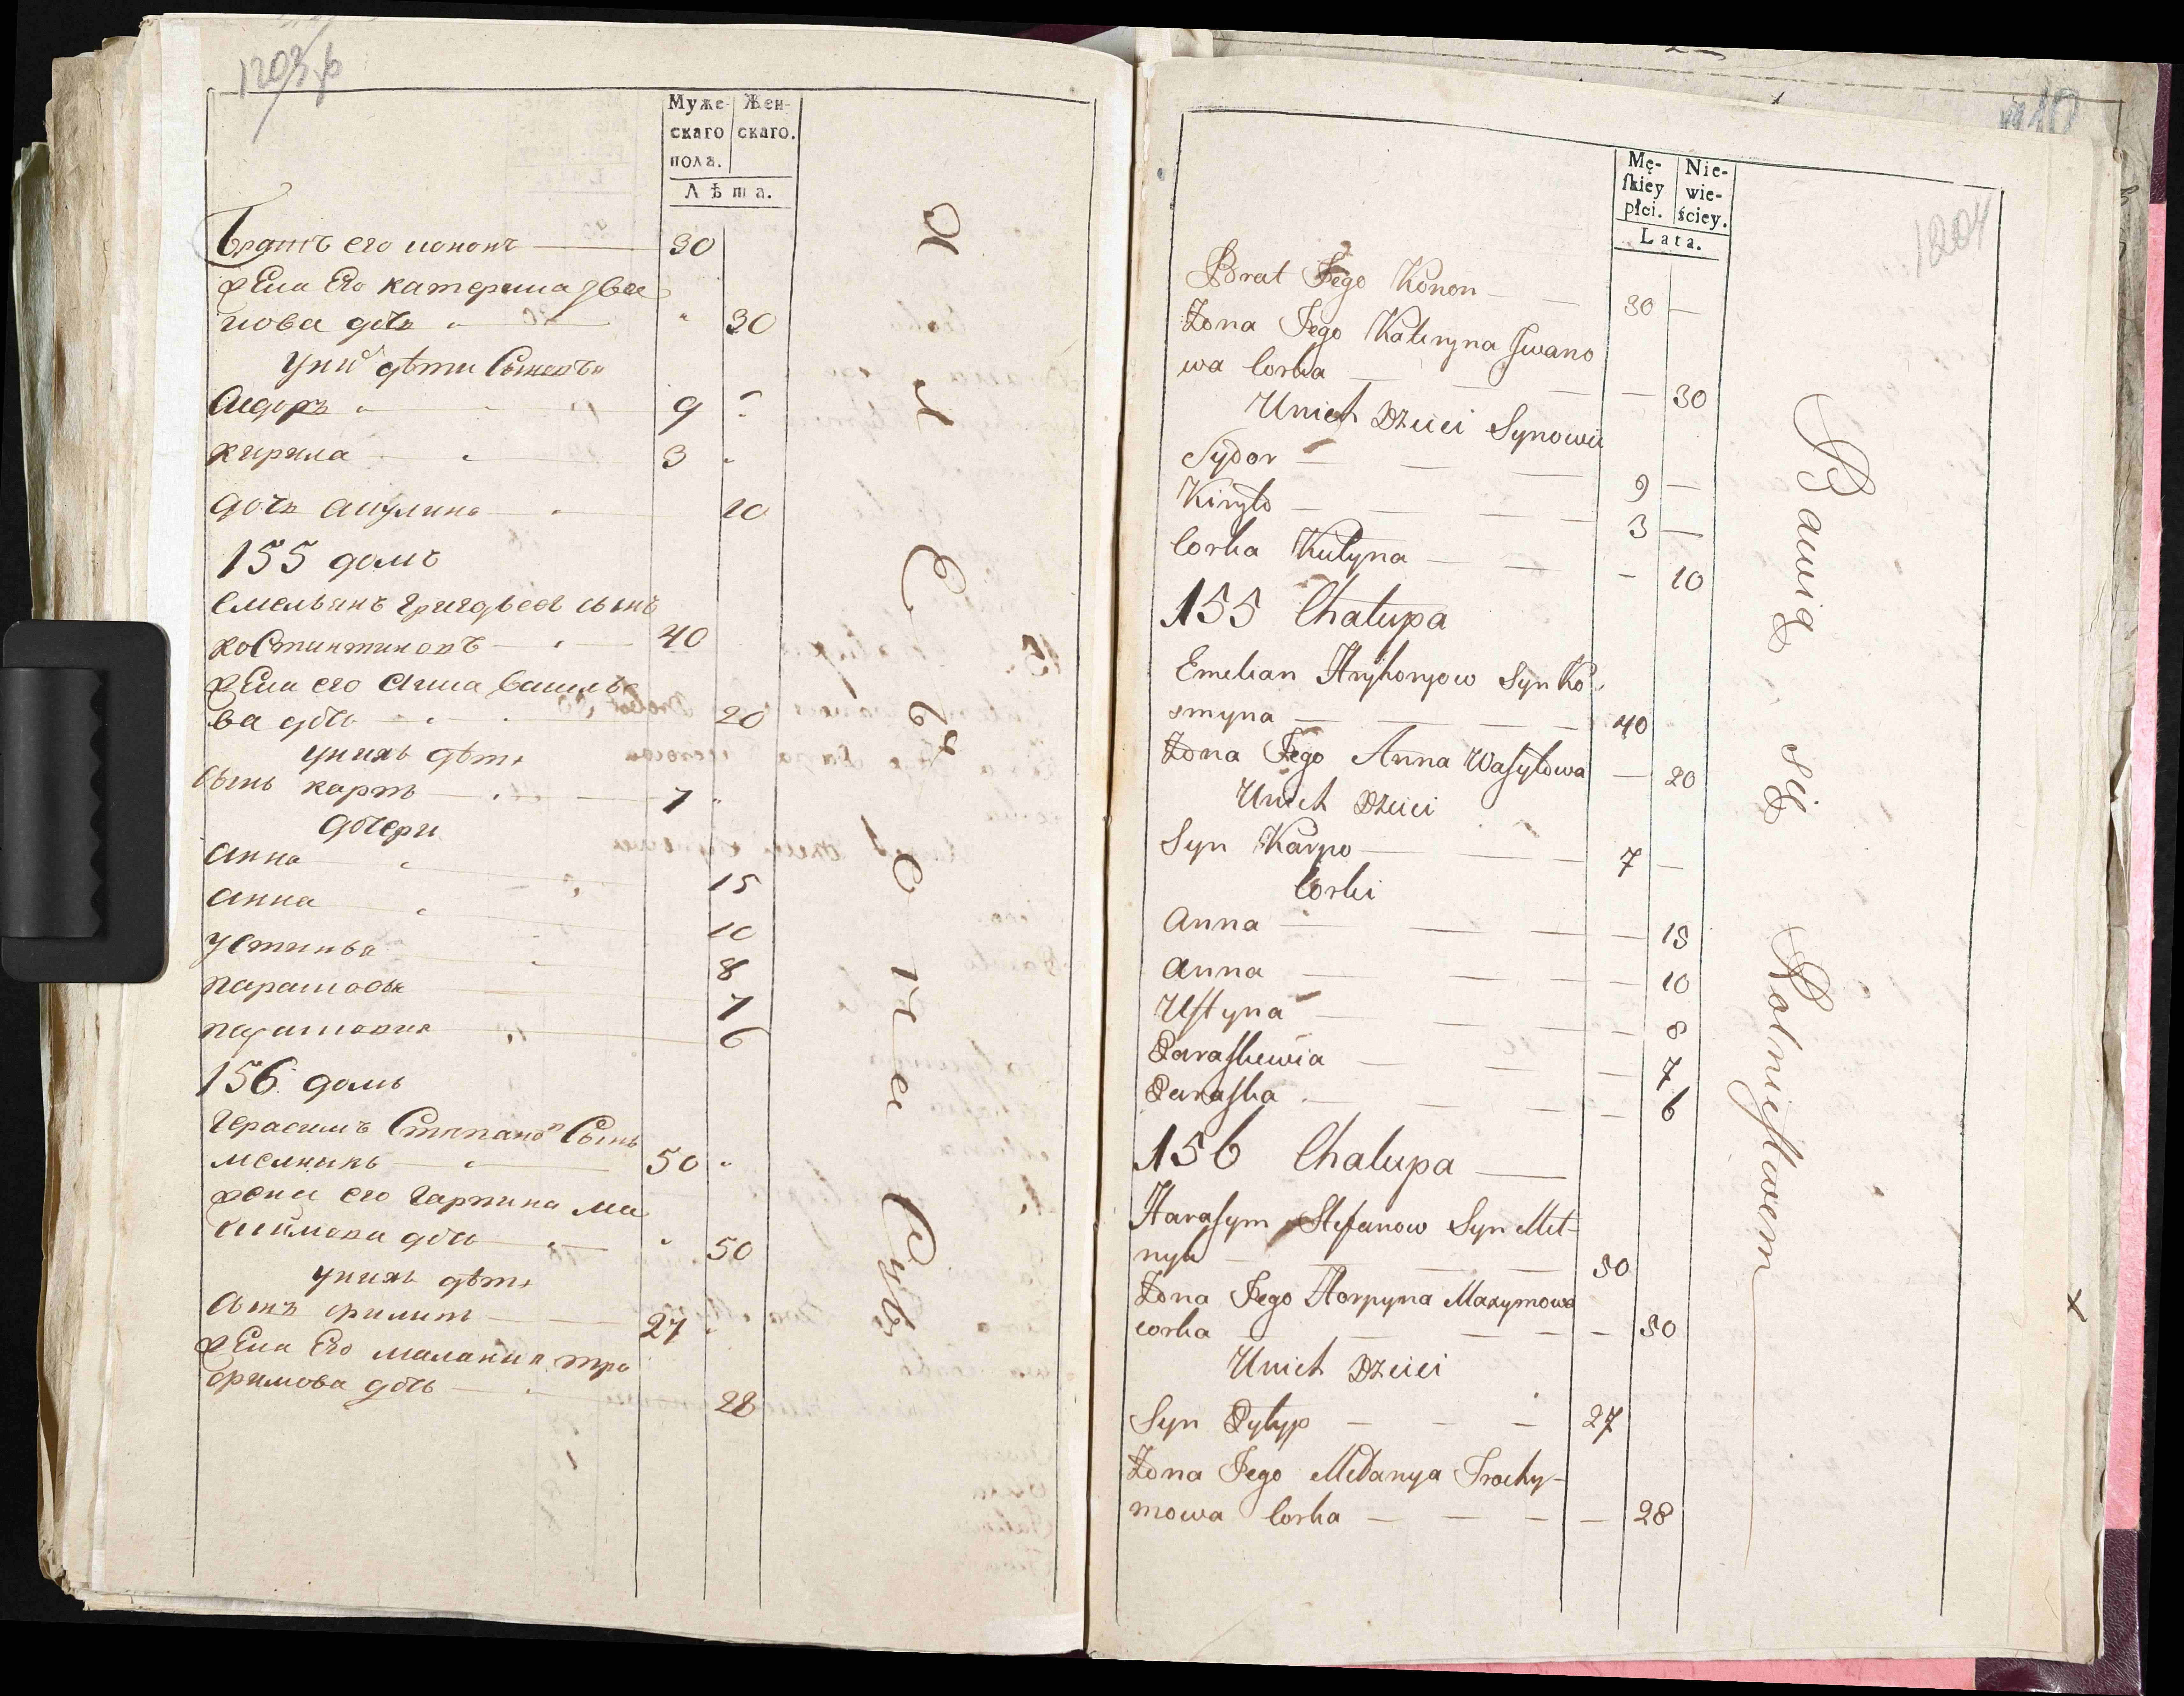 1203
Муже- Жен-
скаго скаго.
пола.
Лѣта.
Братъ его кононъ 30
жена Его катерина Ива
нова дочь 30
у них дѣти Сыновья
Сидоръ 9
кирила 3
дочь акулина 10
155 домъ
Емельянъ григорьевъ сынъ
40
жена его Анна василь
ва дочь 20
у нихъ дѣти
сынъ карпъ 7
дочери
Анна 15
Анна 10
устинья 8
7
6
156 домъ
Герасимъ Степановъ Сынъ
мелникъ 50
жена его Гарпина ма
ксимова дочь 50
у нихъ дѣти
Сынъ филипъ 27
жена Его малания тро
фимова дочь 28
1204
Mę- Nie-
ſkiey wie-
płci. ściey.
Lata.
Brat Jego Konon — — 30 —
Żona Jego Kateryna Jwano
wa Corka — — — — 30
Unich Dzieci Synowie
Sydor — — — 9 —
Kiryło — — — — 3 —
Corka Kulyna — — — 10
155 Chalupa
Emelian Hryhoryow Syn Ko
smyna — — — — 40
Żona Jego Anna Waſylowa — 20
Unich Dzieci
Syn Karpo — — — 7 —
Corki
Anna — — — — 15
Anna — — — — 10
Uſtyna — — — — 8
Paraſkewia — — — 7
Paraſka — — — — 6
156 Chalupa —
Haraſym Stefanow Syn Mel-
nyk — — — — 50
Żona Jego Horpyna Maxymowa
corka — — — — — 50
Unich Dzieci
Syn Pylyp — — — 27
Żona Jego Melanya Trochy-
mowa Corka — — — — 28
Bawią się Rolnictwem